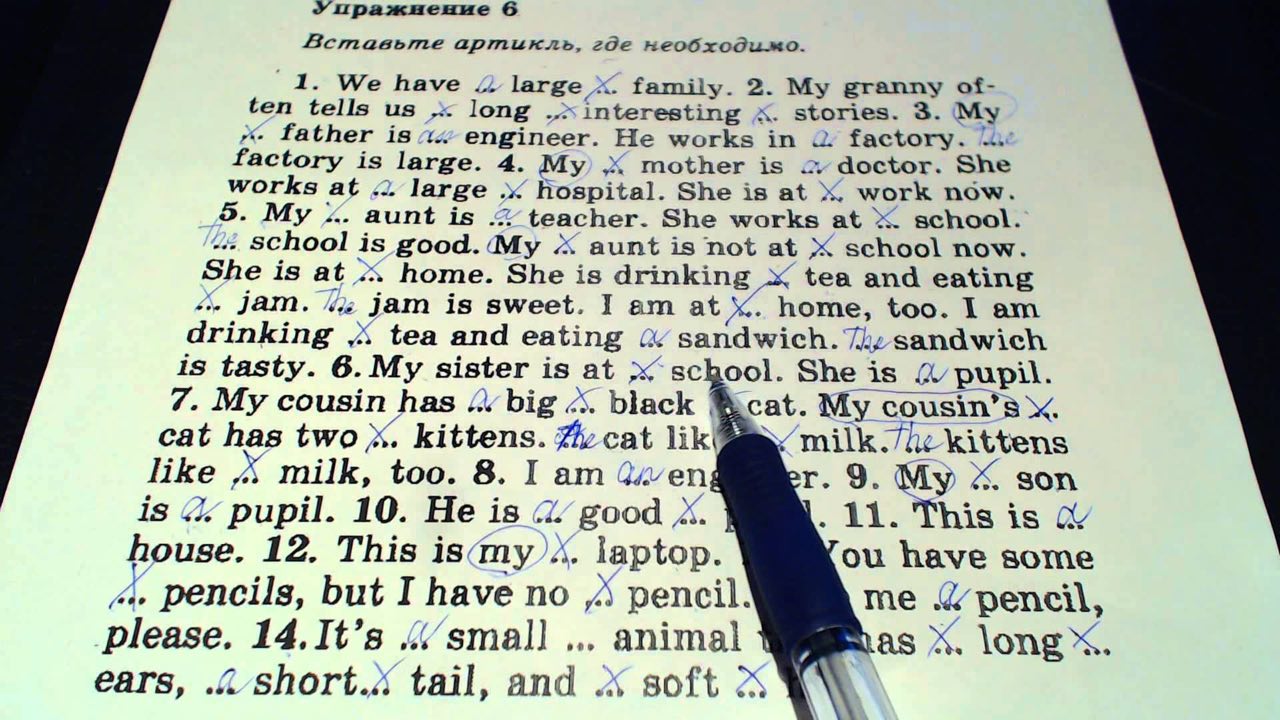 Упражнение 6
Вставьте артикль, где необходимо.
1. We have a large X family. 2. My granny of-
ten tells us X long X interesting X stories. 3. My
X father is an engineer. He works in a factory. The
factory is large. 4. My X mother is a doctor. She
works at a large X hospital. She is at X work now.
5. My X aunt is a teacher. She works at X school.
The school is good. My X aunt is not at X school now.
She is at X home. She is drinking X tea and eating
X jam. The jam is sweet. I am at X home, too. I am
drinking X tea and eating a sandwich. The sandwich
is tasty. 6. My sister is at X school. She is a pupil.
7. My cousin has a big X black cat. My cousin's X
cat has two X kittens. The cat X milk. The kittens
like X milk, too. 8. I am an 9. My X son
is a pupil. 10. He is a good X 11. This is a
house. 12. This is my X laptop. You have some
X pencils, but I have no X pencil. me a pencil,
please. 14. It's a small ... animal has X long X
ears, a short X tail, and X soft X